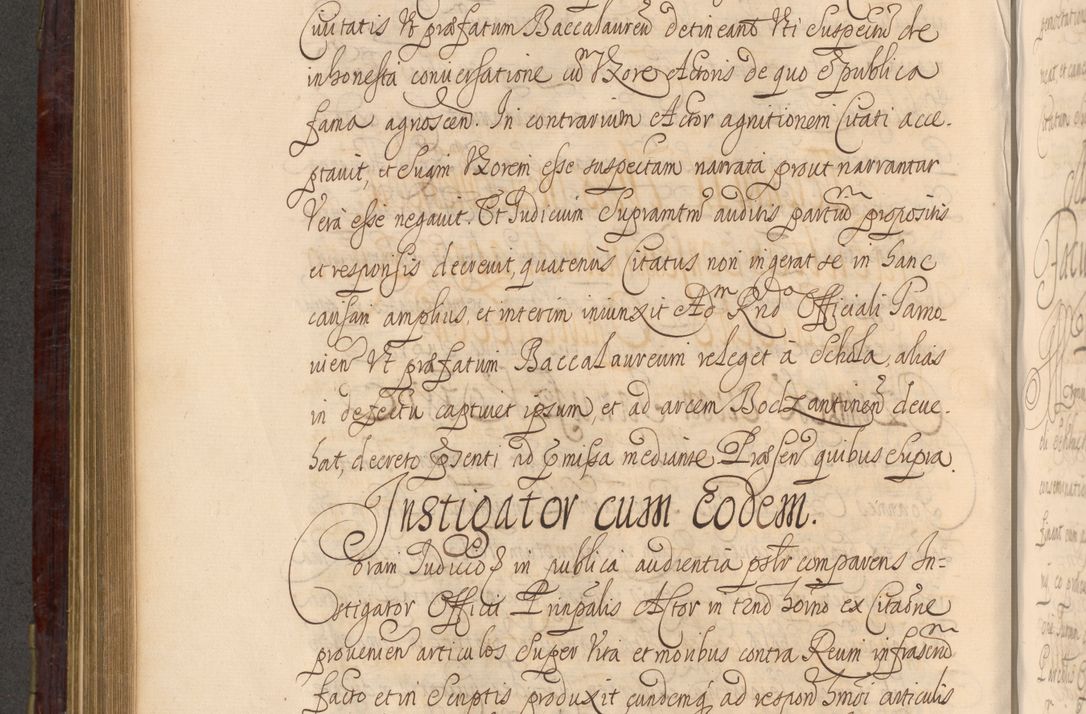 Civitatis Vt præfatum Baccalaureũ detineant Vti suspectũ de
inhonesta conversatione cũ Vxore Actoris de quo ẽ publica
fama agnoscen̄. In contrarium Actor agnitionem Citati acce-
ptavit, et suam Vxorem esse suspectam narrata prout narrantur
Vera esse negavit. Et Judicium Supramtm̃ auditis partium propositis
et responsis decrevit, quatenus Citatus non ingerat se in hanc
causam amplius, et interim iniunxit Adm Rndo Officiali Tarno-
vien̄ Vt præfatum Baccalaureum releget à Schola, alias
in defectu captivet ipsum, et ad arcem Bodzantinen̄ deve-
hat, decreto p̃senti ad p̃missa mediante Præsen̄ quibus supra.
Instigator cum Eodem.
Coram Judicio ꝙ in publica audientia pstr comparens In-
stigator Officii Prinpalis Actor in tenđ hoĩno ex Citaõne
provenien̄ articulos super Vita et moribus contra Reum infrascriũm
facto et in Scriptis produxit eundemq̃ ad respond hm̃õi articulis